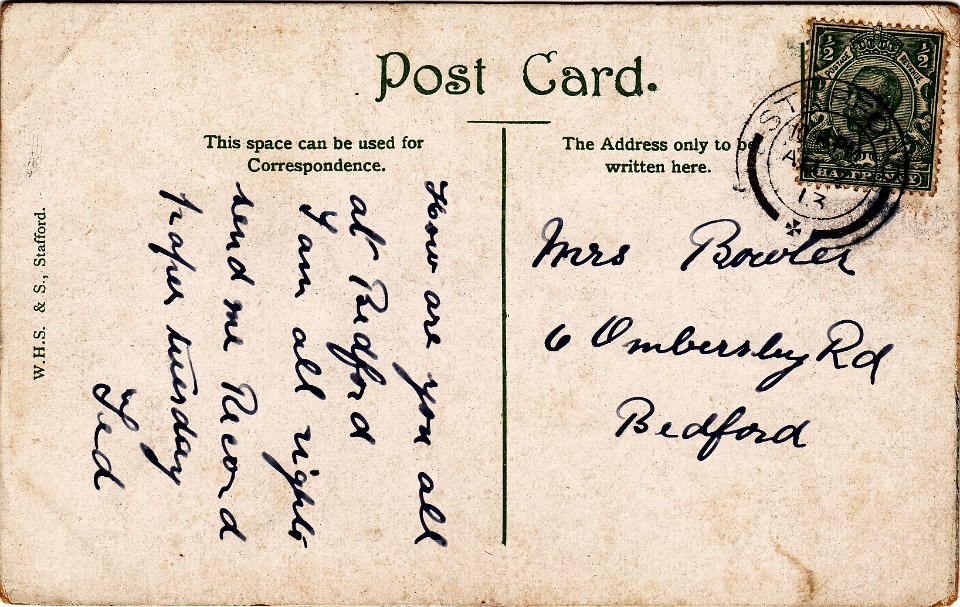 Post Card.
This space can be used for
Correspondence.
The Address only to be
written here.
How are you all
at Bedford
I am all right
send me Record
paper tuesday
Ted
Mrs Bowler
6 Ombersley Rd
Bedford
W.H.S. & S., Stafford.
½ ½
POSTAGE REVENUE
HALFPENNY
13